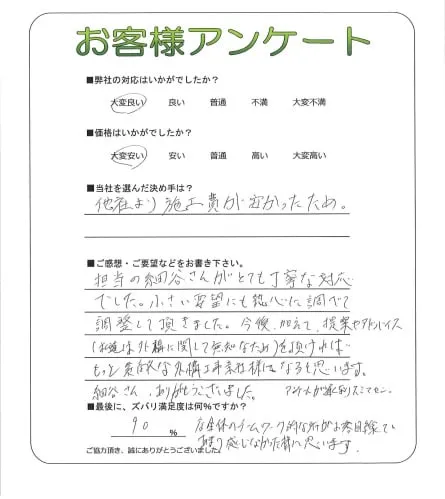 お客様アンケート
■弊社の対応はいかがでしたか？
大変良い 良い 普通 不満 大変不満
■価格はいかがでしたか？
大変安い 安い 普通 高い 大変高い
■当社を選んだ決め手は？
他社より施工費が安かったため。
■ご感想・ご要望などをお書き下さい。
担当の細谷さんがとても丁寧な対応
でした。小さい要望にも熱心に調べて
調整して頂きました。今後、加えて、提案やアドバイス
(お客は外構に関して無知なため)を頂ければ
もっと素敵な外構工事会社様になると思います。
細谷さん、ありがとうございました。 アンケートが遅れ スミマセン。
■最後に、ズバリ満足度は何%ですか？
90 %
感じ 思います。
ご協力頂き、誠にありがとうございました。